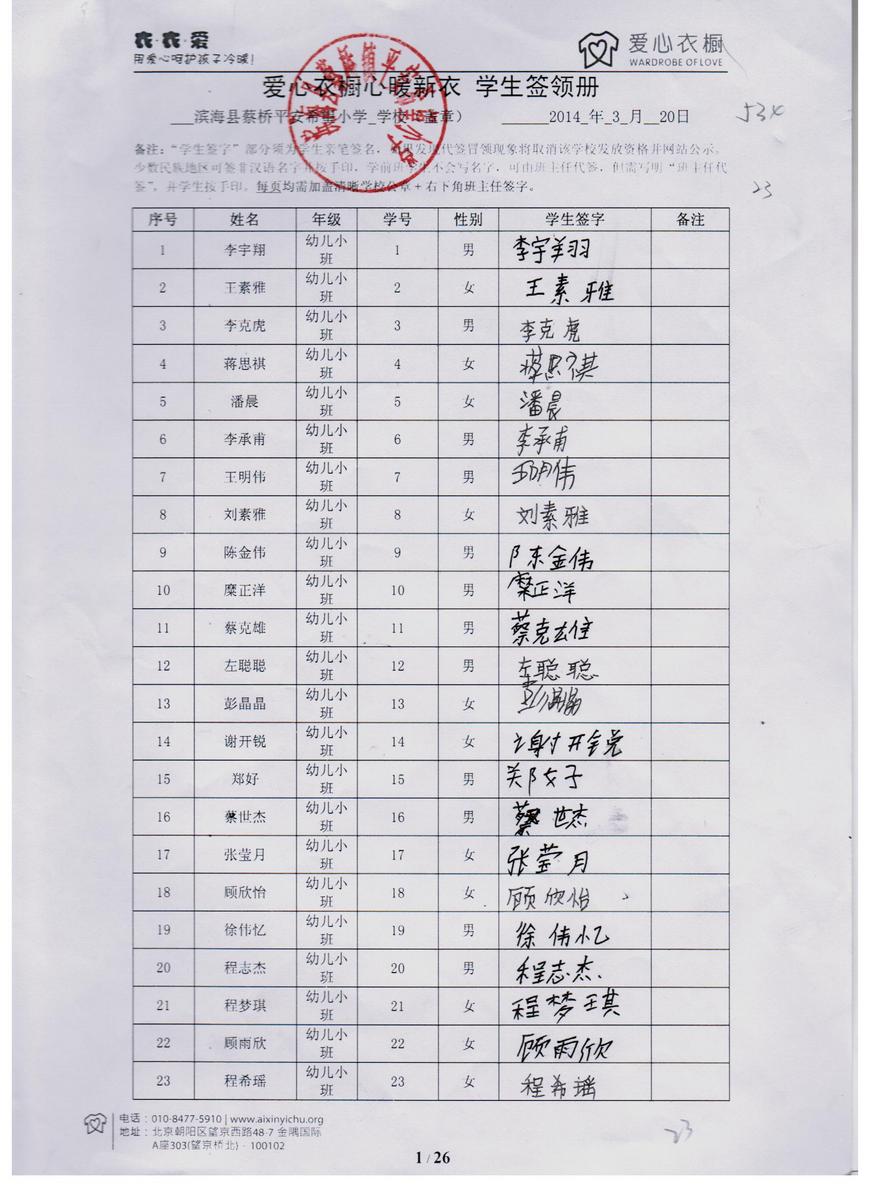 衣·衣·爱
用爱心呵护孩子冷暖!
爱心衣橱
WARDROBE OF LOVE
爱心衣橱心暖新衣 学生签领册
滨海县蔡桥平安希望小学_学校（盖章） 2014_年_3_月__20日
534
备注：“学生签字”部分须为学生亲笔签名，如果发现代签冒领现象将取消该学校发放资格并网站公示。
少数民族地区可签非汉语名字并按手印，学前班学生不会写名字，可由班主任代签，但需写明“班主任代
签”，并学生按手印。每页均需加盖清晰学校公章+右下角班主任签字。
23
序号 姓名 年级 学号 性别 学生签字 备注
1 李宇翔 幼儿小班 1 男 李宇翔
2 王素雅 幼儿小班 2 女 王素雅
3 李克虎 幼儿小班 3 男 李克虎
4 蒋思祺 幼儿小班 4 女 蒋思祺
5 潘晨 幼儿小班 5 女 潘晨
6 李承甫 幼儿小班 6 男 李承甫
7 王明伟 幼儿小班 7 男 王明伟
8 刘素雅 幼儿小班 8 女 刘素雅
9 陈金伟 幼儿小班 9 男 陈金伟
10 糜正洋 幼儿小班 10 男 糜正洋
11 蔡克雄 幼儿小班 11 男 蔡克雄
12 左聪聪 幼儿小班 12 男 左聪聪
13 彭晶晶 幼儿小班 13 女 彭晶晶
14 谢开锐 幼儿小班 14 女 谢开锐
15 郑好 幼儿小班 15 男 郑好
16 蔡世杰 幼儿小班 16 男 蔡世杰
17 张莹月 幼儿小班 17 女 张莹月
18 顾欣怡 幼儿小班 18 女 顾欣怡
19 徐伟忆 幼儿小班 19 男 徐伟忆
20 程志杰 幼儿小班 20 男 程志杰
21 程梦琪 幼儿小班 21 女 程梦琪
22 顾雨欣 幼儿小班 22 女 顾雨欣
23 程希瑶 幼儿小班 23 女 程希瑶
电话：010-8477-5910 | www.aixinyichu.org
地址：北京朝阳区望京西路48-7 金隅国际
A座303(望京桥北) · 100102
23
1 / 26